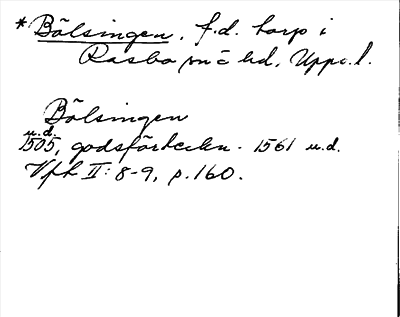 * Bölsingen, f.d. torp i
Rasbo sn o hd, Uppl.
Bölsingen
u.d.
1505, godsförteckn. 1561 u.d.
Vfk II: 8-9, p. 160.